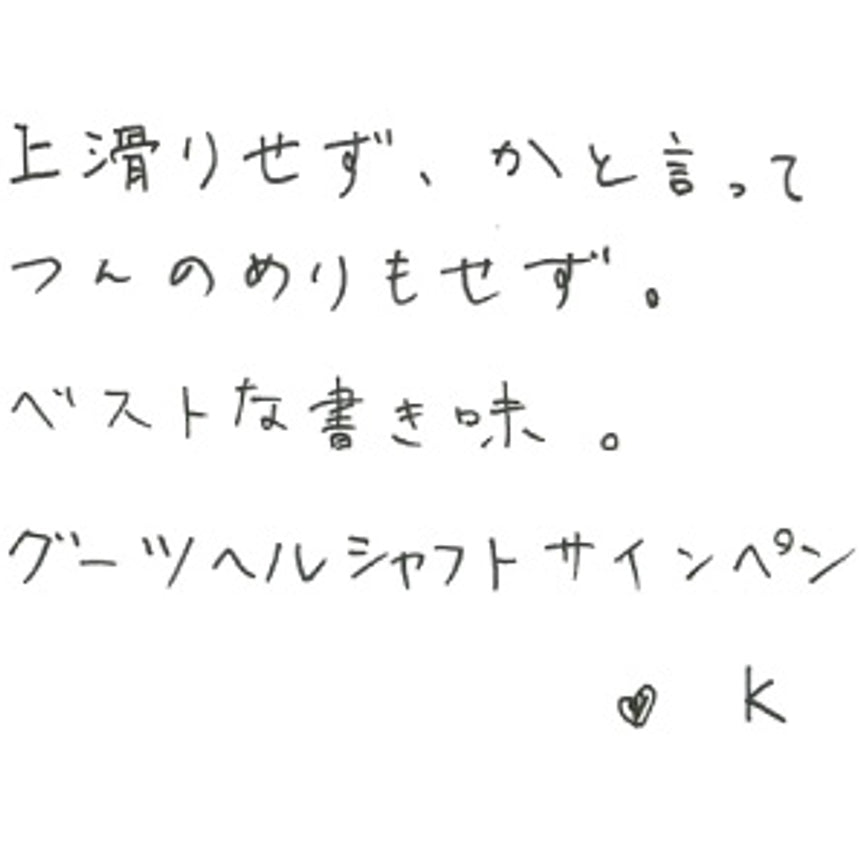 上滑りせず、かと言って
つんのめりもせず。
ベストな書き味。
グーツヘルシャフトサインペン
♥ K